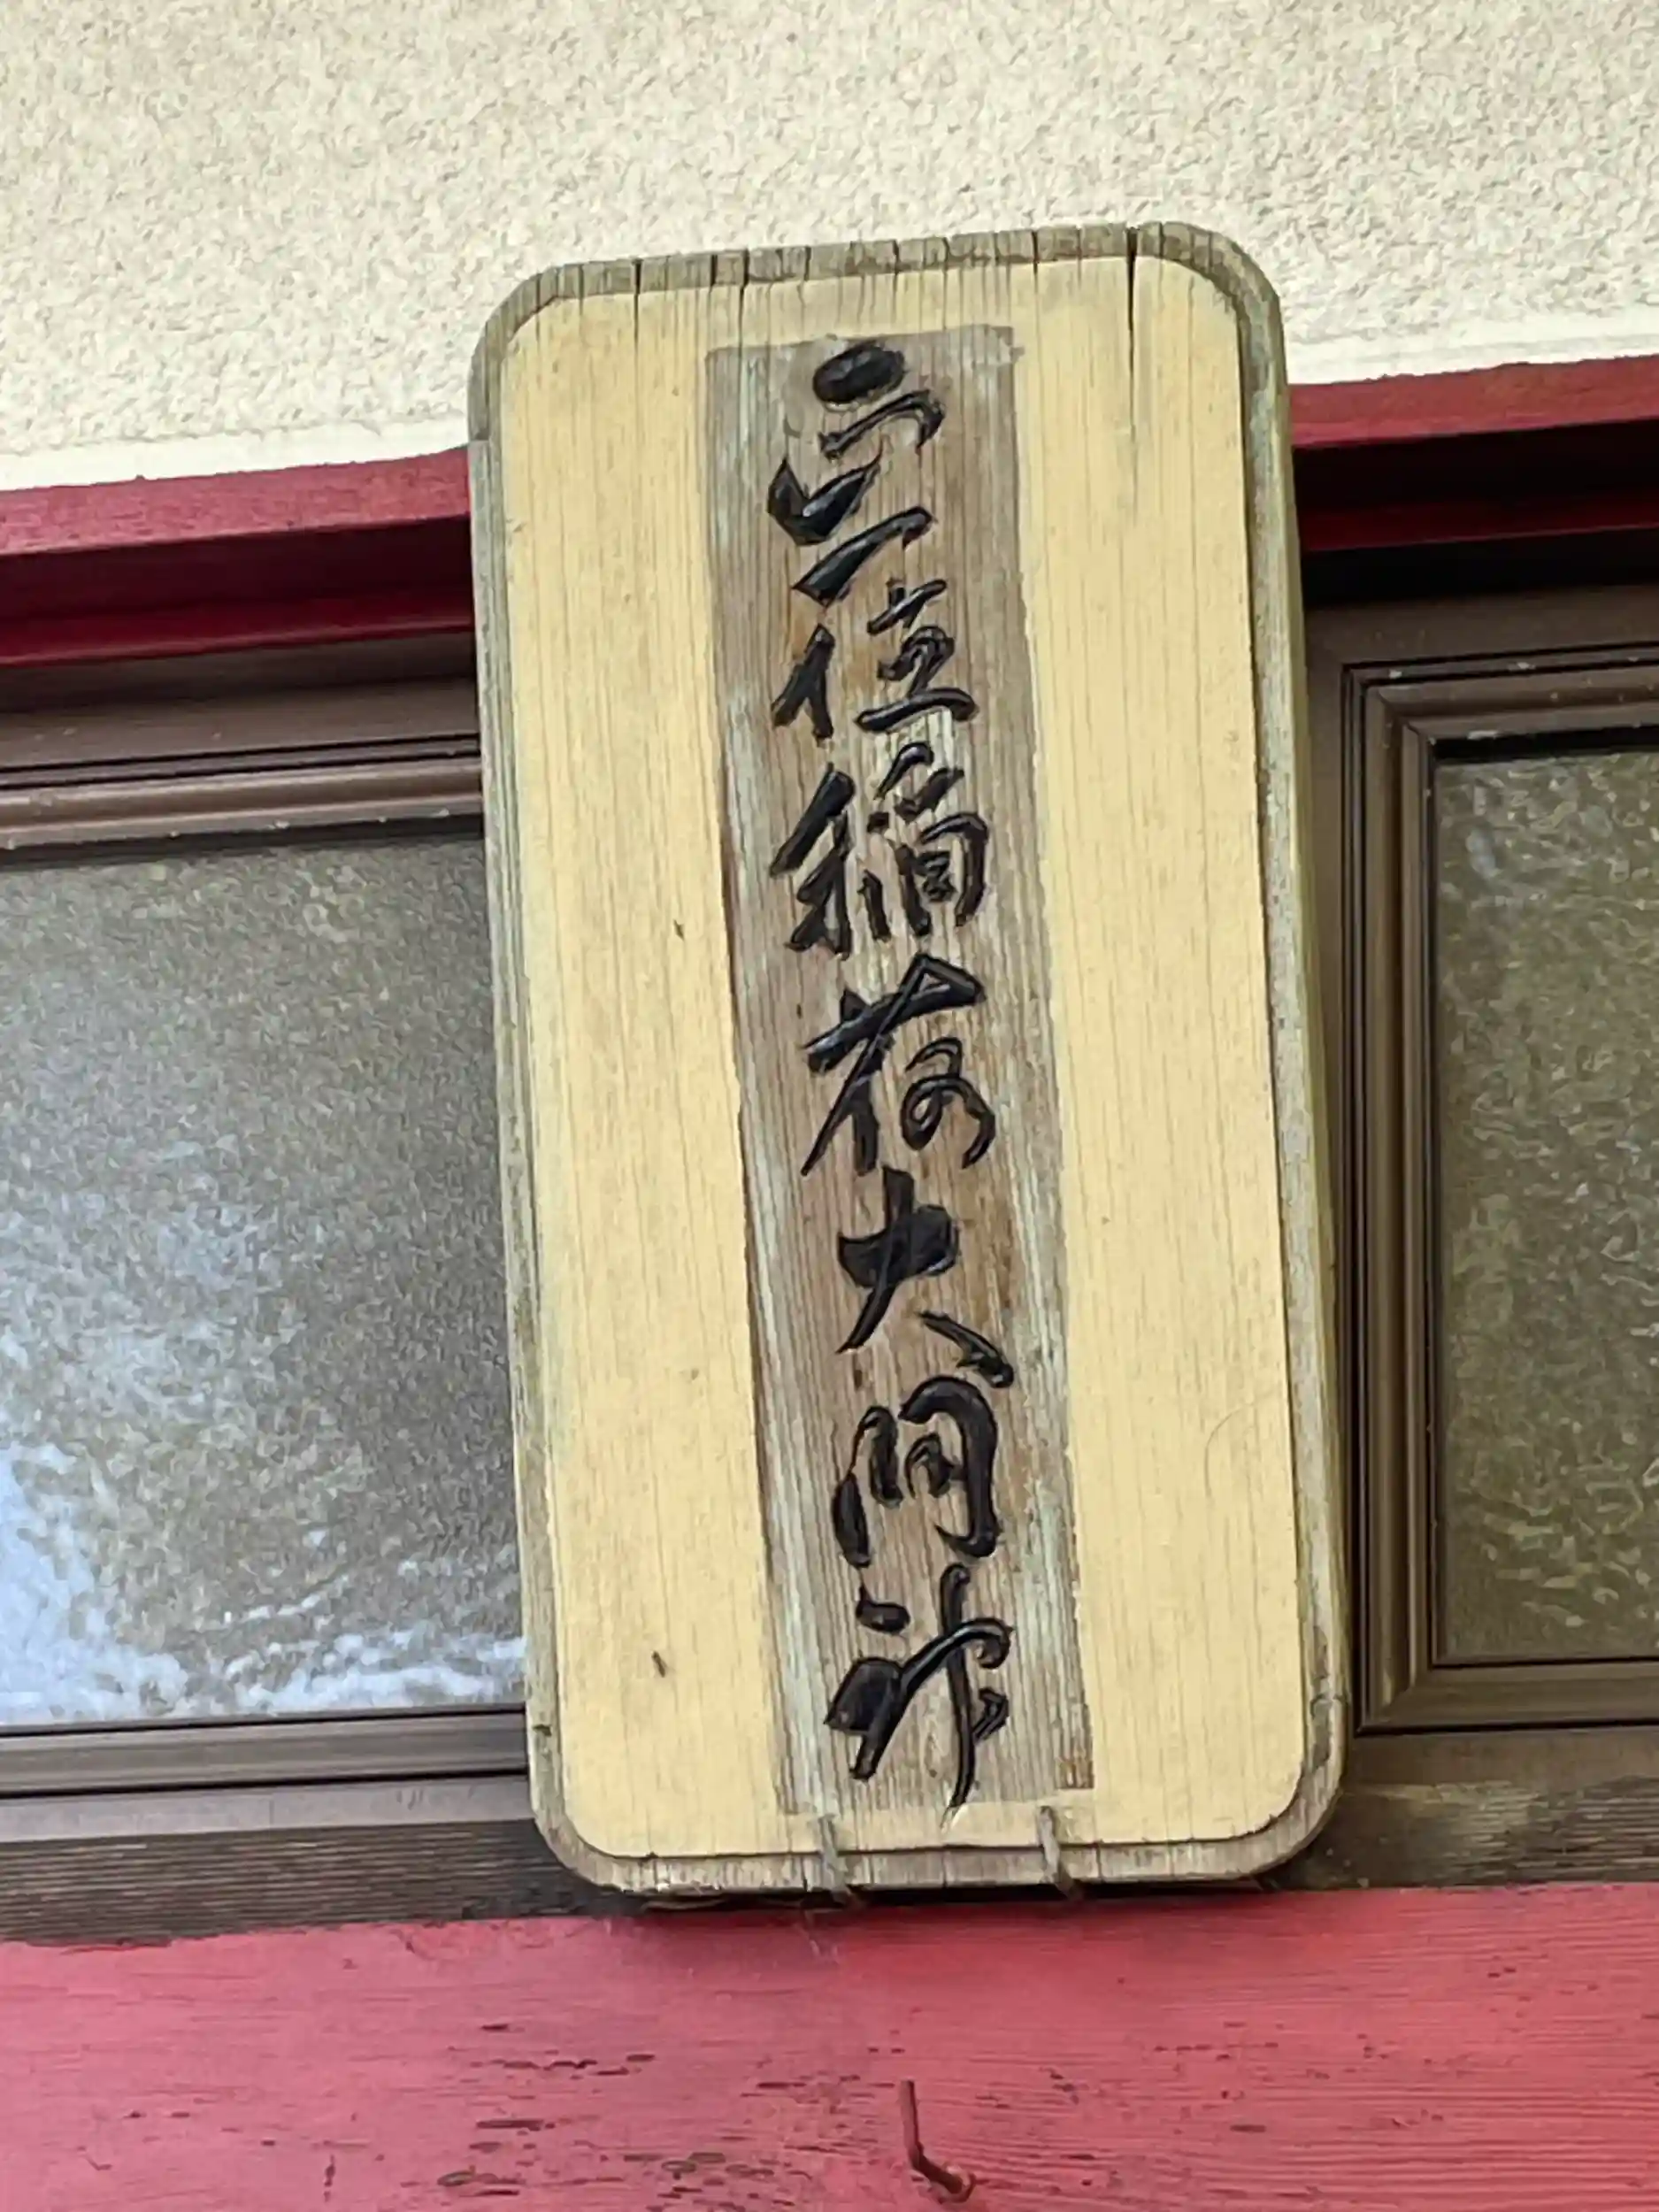 正一位稲荷大明神